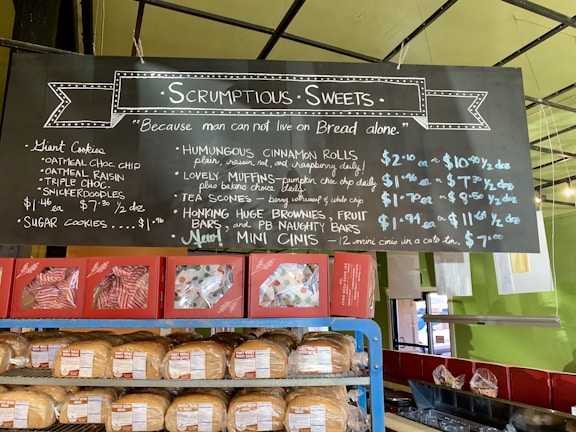 · SCRUMPTIOUS · SWEETS ·
"Because man can not live on Bread alone."
· Giant Cookies
· OATMEAL CHOC CHIP
· OATMEAL RAISIN
· TRIPLE CHOC.
· SNICKERDOODLES
$1.46 ea $7.30 1/2 dz
· SUGAR COOKIES .... $1.96
· HUMUNGOUS CINNAMON ROLLS
plain, raisin nut, and raspberry daily! $2.10 ea or $10.50 1/2 doz
· LOVELY MUFFINS - pumpkin choc chip daily
plus bakers choice daily $1.46 ea or $7.30 1/2 doz
· TEA SCONES - berry wholewheat & white chip $1.70 ea or $8.50 1/2 doz
· HONKING HUGE BROWNIES, FRUIT
BARS, and PB NAUGHTY BARS $1.94 ea or 1/2 doz
· New! MINI CINIS - 12 mini cinis in a cute tin. $7.00